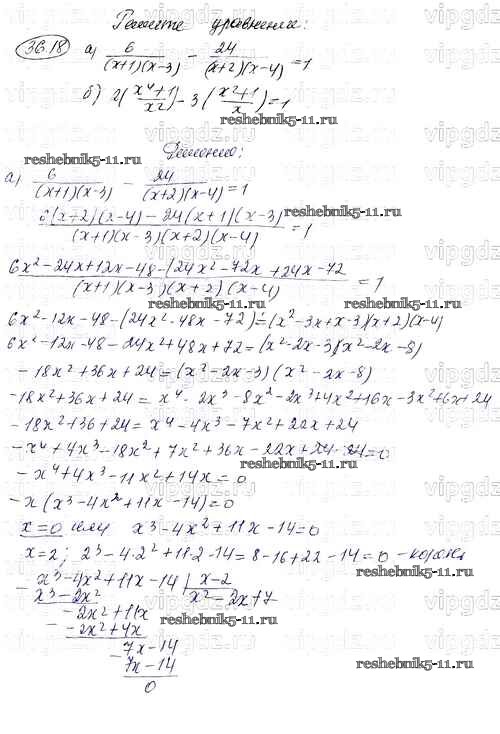 Решите уравнения:
36.18 а) 6/((x+1)(x-3)) - 24/((x+2)(x-4)) = 1
б) 2((x⁴+1)/x²) - 3((x²+1)/x) = 1
reshebnik5-11.ru
Решение:
reshebnik5-11.ru
а) 6/((x+1)(x-3)) - 24/((x+2)(x-4)) = 1
reshebnik5-11.ru
(6(x+2)(x-4) - 24(x+1)(x-3))/((x+1)(x-3)(x+2)(x-4)) = 1
(6x²-24x+12x-48-(24x²-72x+24x-72)/((x+1)(x-3)(x+2)(x-4)) = 1
reshebnik5-11.ru reshebnik5-11.ru
6x²-12x-48-(24x²-48x-72)=(x²-3x+x-3)(x+2)(x-4)
6x²-12x-48-24x²+48x+72=(x²-2x-3)(x²-2x-8)
-18x²+36x+24=(x²-2x-3)(x²-2x-8)
-18x²+36x+24=x⁴-2x³-8x²-2x³+4x²+16x-3x²+6x+24
-18x²+36+24=x⁴-4x³-7x²+22x+24
-x⁴+4x³-18x²+7x²+36x-22x+24-24=0
reshebnik5-11.ru
-x⁴+4x³-11x²+14x=0
-x(x³-4x²+11x-14)=0
x=0 или x³-4x²+11x-14=0
x=2; 2³-4·2²+11·2-14=8-16+22-14=0 - корень
reshebnik5-11.ru
x³-4x²+11x-14 | x-2
x³-2x² x²-2x+7
-2x²+11x
-2x²+4x
reshebnik5-11.ru
7x-14
7x-14
reshebnik5-11.ru
0